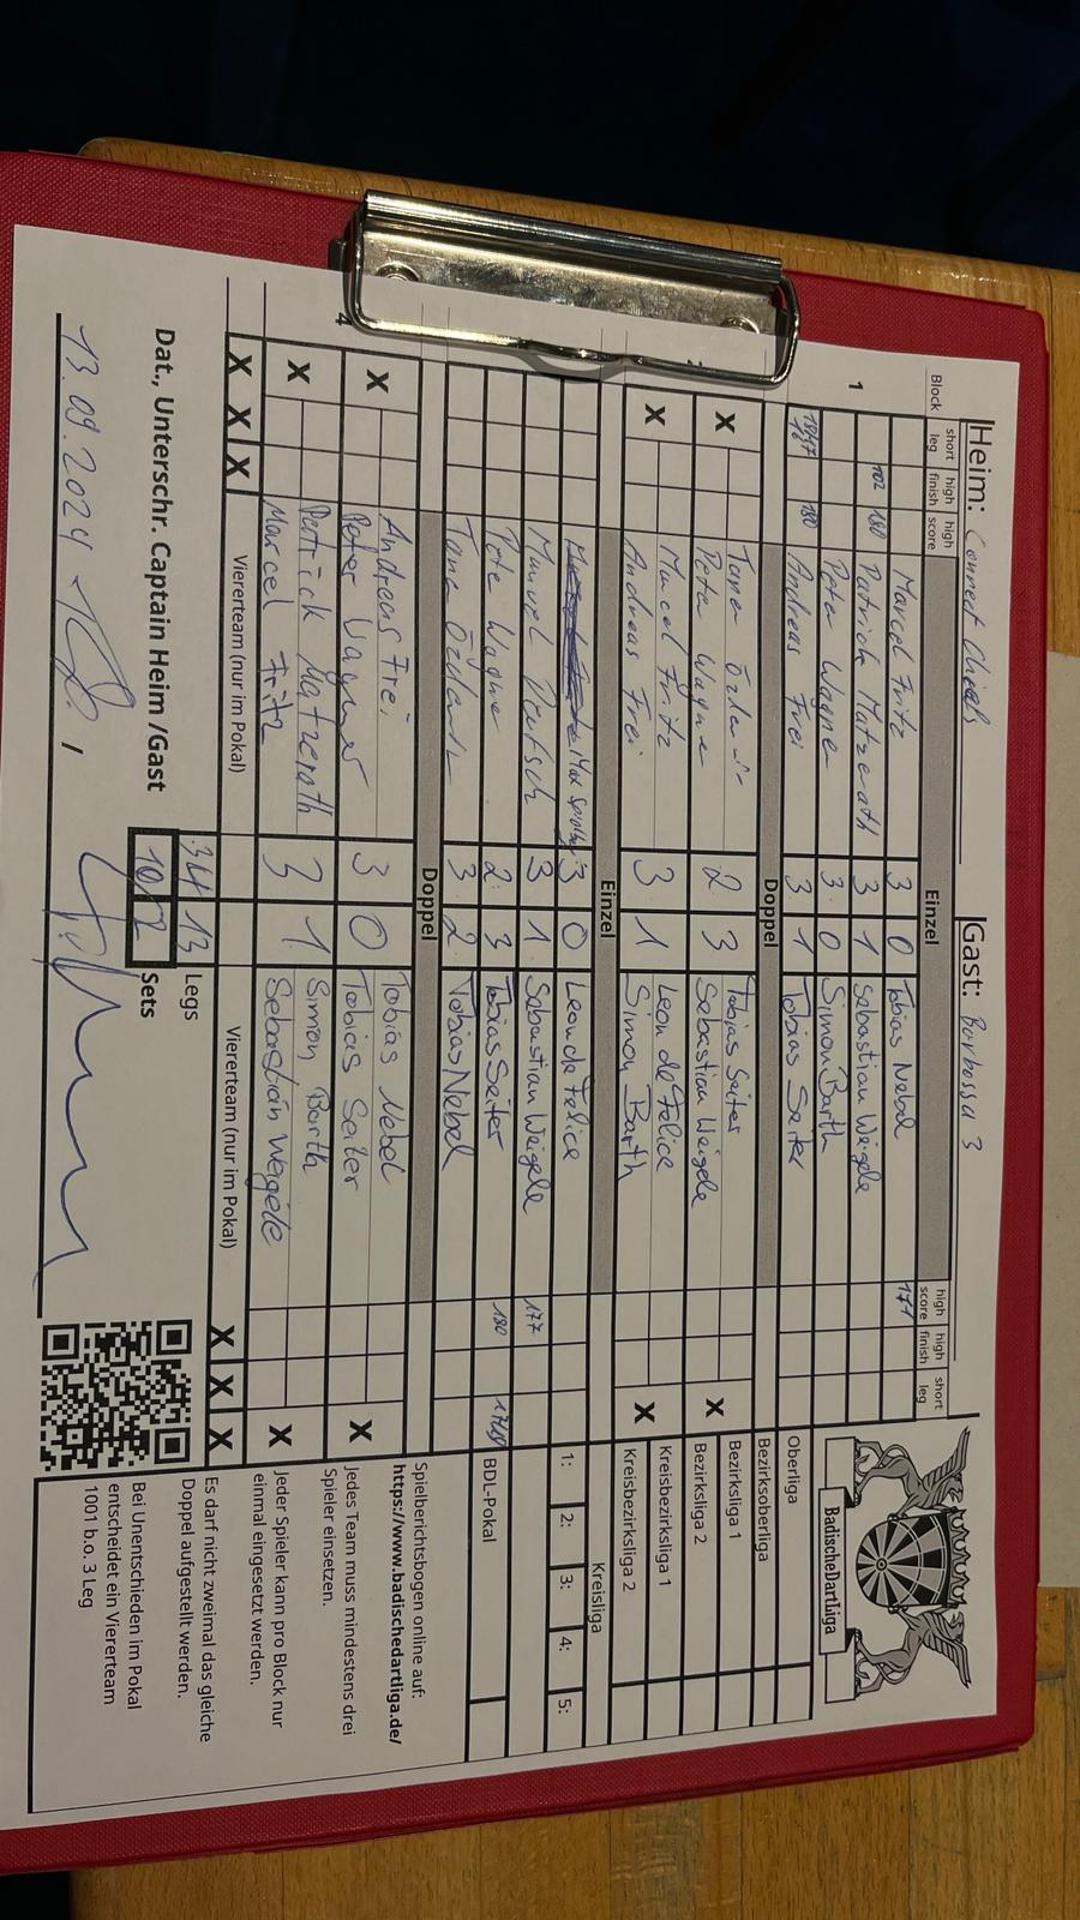 Heim: Connect Chiefs
Gast: Barbossa 3
Block short leg high finish high score Einzel high score high finish short leg
1 Marcel Fritz 3 0 Tobias Nebel 171
102 180 Patrick Matzerath 3 1 Sebastian Weigele
Peter Wagner 3 0 Simon Barth
180 Andreas Frei 3 1 Tobias Seiter
Doppel
X Taner 2 3 Tobias Seiter X
Peter Wagner Sebastian Weigele
X Marcel Fritz 3 1 Leon de Felice X
Andreas Frei Simon Barth
Einzel
Max 3 0 Leon de Felice
Manuel 3 1 Sebastian Weigele 177
Pete Wagner 2 3 Tobias Seiter 180
Taner 3 2 Tobias Nebel
Doppel
4 X Andreas Frei 3 0 Tobias Nebel X
Peter Wagner Tobias Seiter
X Patrick Matzerath 3 1 Simon Barth X
Marcel Fritz Sebastian Weigele
X X X Viererteam (nur im Pokal) Viererteam (nur im Pokal) X X X
34 13 Legs
Dat., Unterschr. Captain Heim /Gast 10 2 Sets
13.09.2024
BadischeDartLiga
Oberliga
Bezirksoberliga
Bezirksliga 1
Bezirksliga 2
Kreisbezirksliga 1
Kreisbezirksliga 2
Kreisliga
1: 2: 3: 4: 5:
BDL-Pokal
Spielberichtsbogen online auf:
https://www.badischedartliga.de/
Jedes Team muss mindestens drei
Spieler einsetzen.
Jeder Spieler kann pro Block nur
einmal eingesetzt werden.
Es darf nicht zweimal das gleiche
Doppel aufgestellt werden.
Bei Unentschieden im Pokal
entscheidet ein Viererteam
1001 b.o. 3 Leg